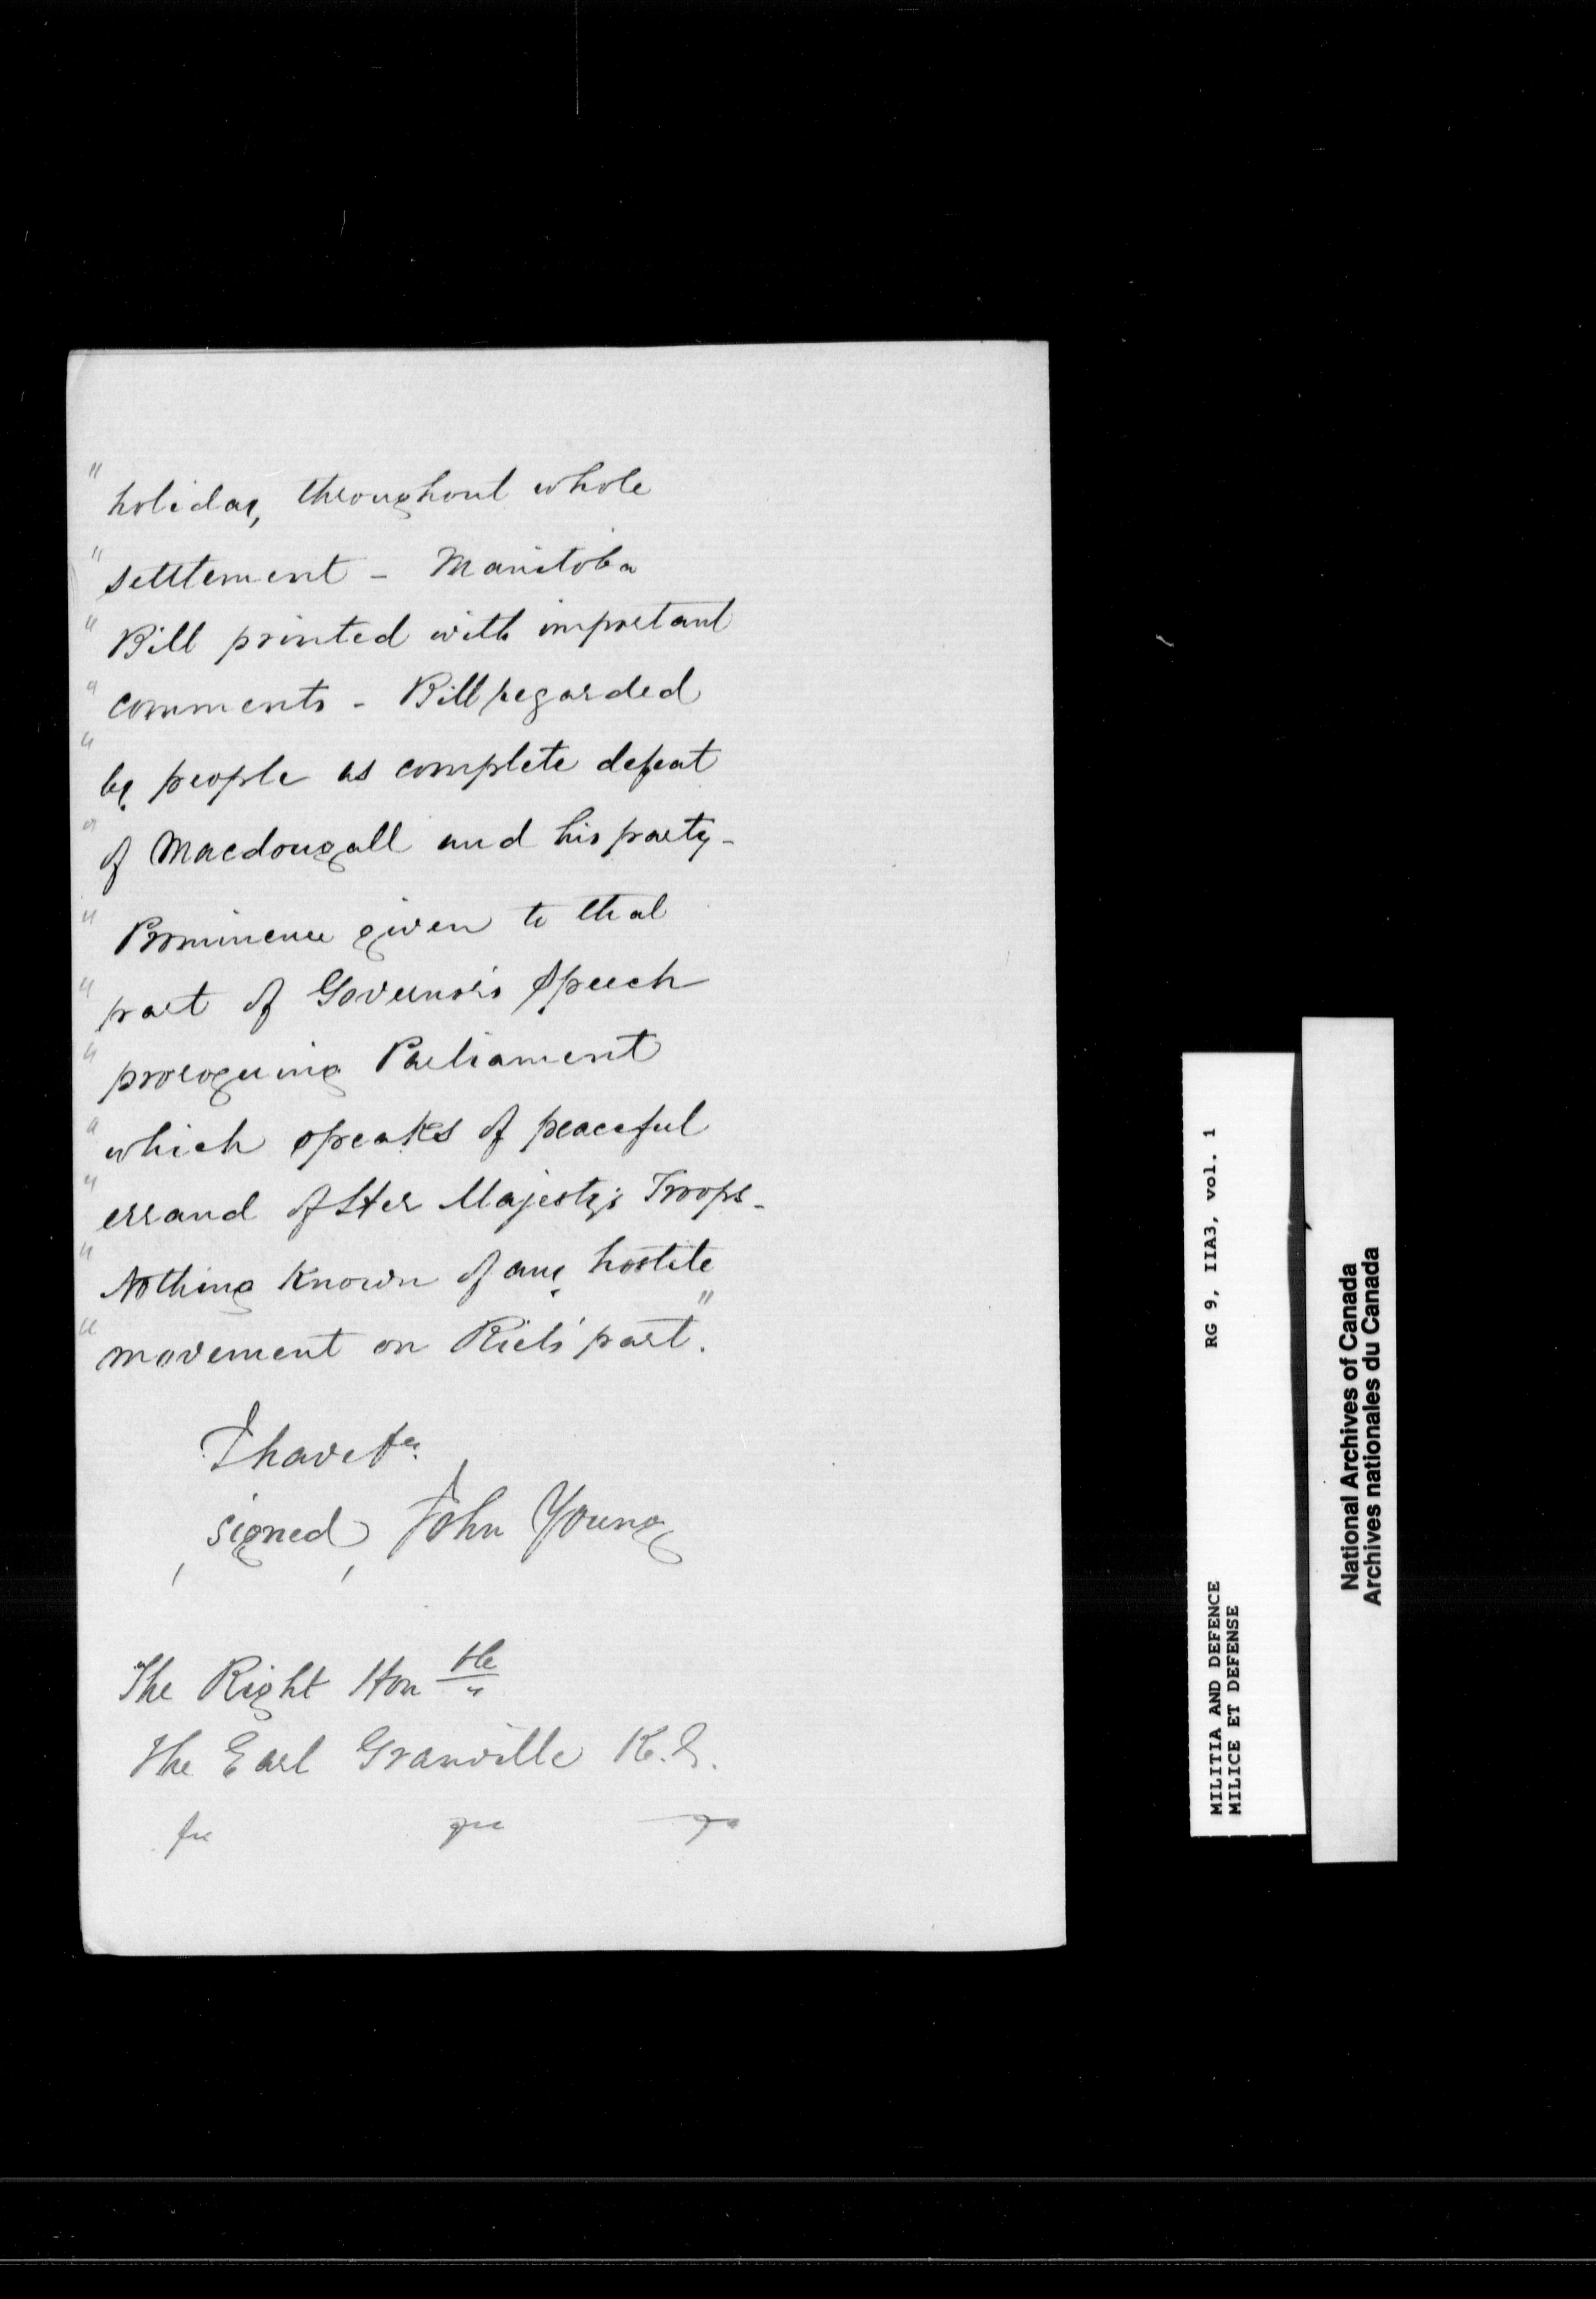 " holiday, throughout whole
" settlement - Manitoba
" Bill printed with important
" comments - Bill regarded
" by people as complete defeat
" of Macdougall and his party -
" Prominence given to that
" part of Governor's Speech
" proroguing Parliament
" which speaks of peaceful
" errand of Her Majesty's Troops -
" Nothing Known of any hostile
" movement on Riel's part."
I have &c.
(signed) John Young
The Right Honble
The Earl Granville K.G.
&c &c &c
MILITIA AND DEFENCE RG 9, IIA3, vol. 1
MILICE ET DEFENSE
National Archives of Canada
Archives nationales du Canada